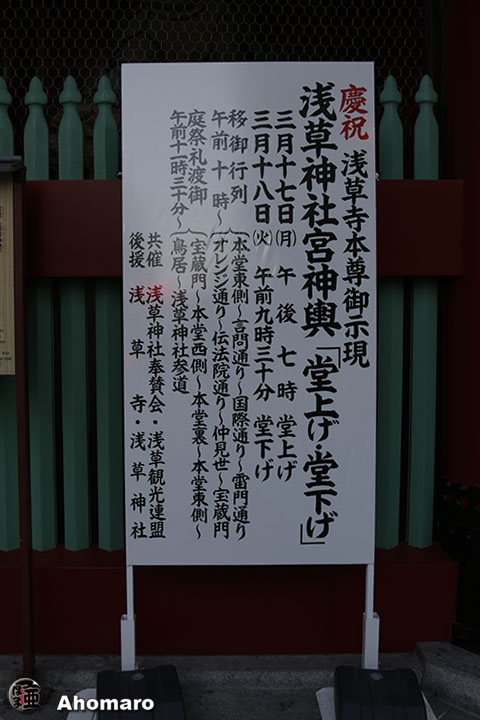 慶祝 浅草寺本尊御示現
浅草神社宮神輿「堂上げ・堂下げ」
三月十七日㈪ 午後七時 堂上げ
三月十八日㈫ 午前九時三十分 堂下げ
移御行列 本堂東側～言問通り～国際通り～雷門通り
午前十時～ オレンジ通り～伝法院通り～仲見世～宝蔵門
庭祭礼渡御 宝蔵門～本堂西側～本堂裏～本堂東側～
午前十一時三十分～ 鳥居～浅草神社参道
共催 浅草神社奉賛会・浅草観光連盟
後援 浅草寺・浅草神社
Ahomaro